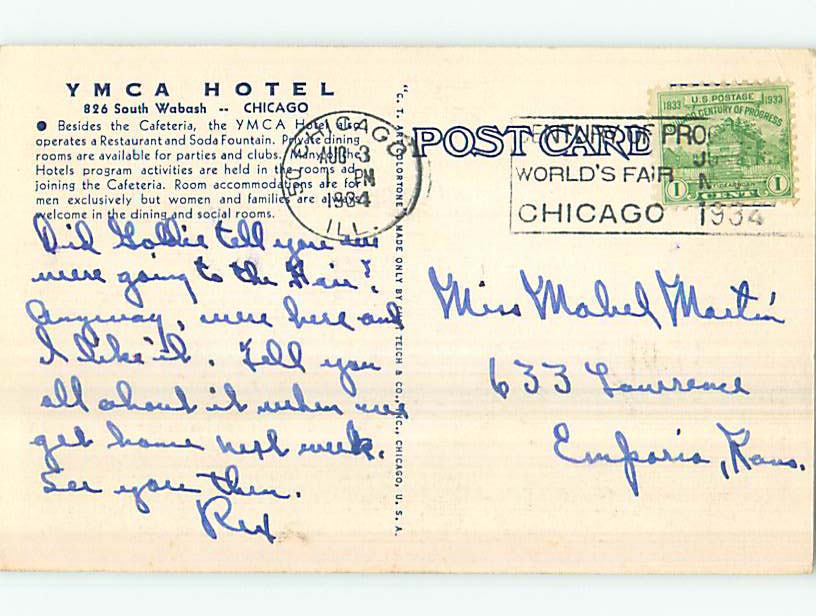 YMCA HOTEL
826 South Wabash -- CHICAGO
● Besides the Cafeteria, the YMCA Hotel also
operates a Restaurant and Soda Fountain. Private dining
rooms are available for parties and clubs. Many of the
Hotels program activities are held in the rooms ad-
joining the Cafeteria. Room accommodations are for
men exclusively but women and families are always
welcome in the dining and social rooms.
Did Goldie tell you we
were going to the Fair?
Anyway, were here and
I like it. Tell you
all about it when we
get home next week.
See you then.
Rex
"C. T. ART COLORTONE" MADE ONLY BY CURT TEICH & CO., INC., CHICAGO, U. S. A.
CHICAGO
AUG 3
PM
1934
ILL.
POST CARD
PRO
WORLD'S FAIR
CHICAGO
JU
N
1934
U.S. POSTAGE
1833 1933
CENTURY OF PROGRESS
1 CENT 1
Miss Mabel Martin
633 Lawrence
Emporia, Kans.